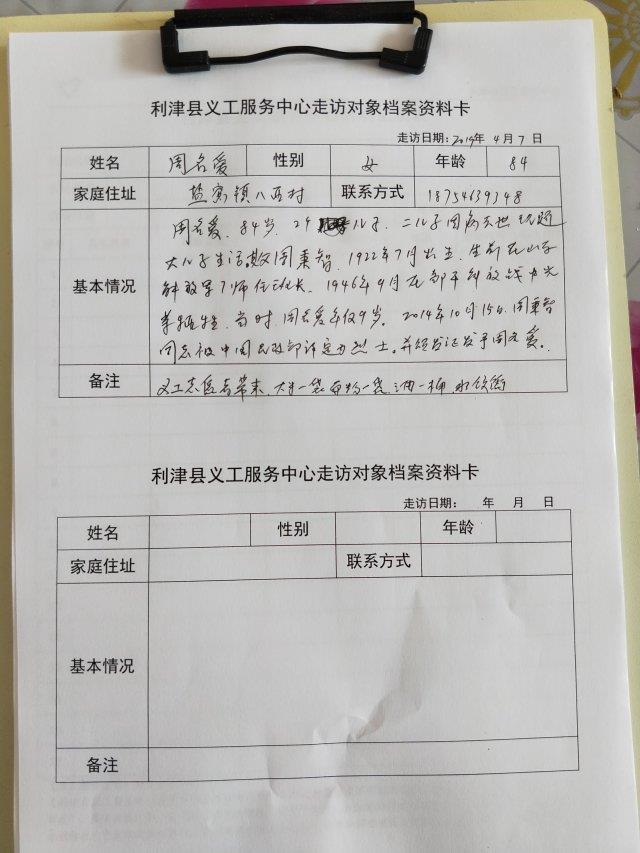 利津县义工服务中心走访对象档案资料卡
走访日期: 2019年 4月 7日
姓名 周名爱 性别 女 年龄 84
家庭住址 盐窝镇八西村 联系方式 18754639348
周名爱、84岁、2个儿子、二儿子因病去世 现随
基本情况
大儿子生活。父周秉智、1922年7月出生、生前在山东
解放军7师任班长、1946年9月在邹平解放战中光
荣牺牲、当时、周名爱年仅9岁。2014年10月15日、周秉智
同志被中国民政部评定为烈士。并颁发证发予周名爱。
备注 义工志愿者带来、大米一袋 一袋、油一桶
利津县义工服务中心走访对象档案资料卡
走访日期: 年 月 日
姓名 性别 年龄
家庭住址 联系方式
基本情况
备注